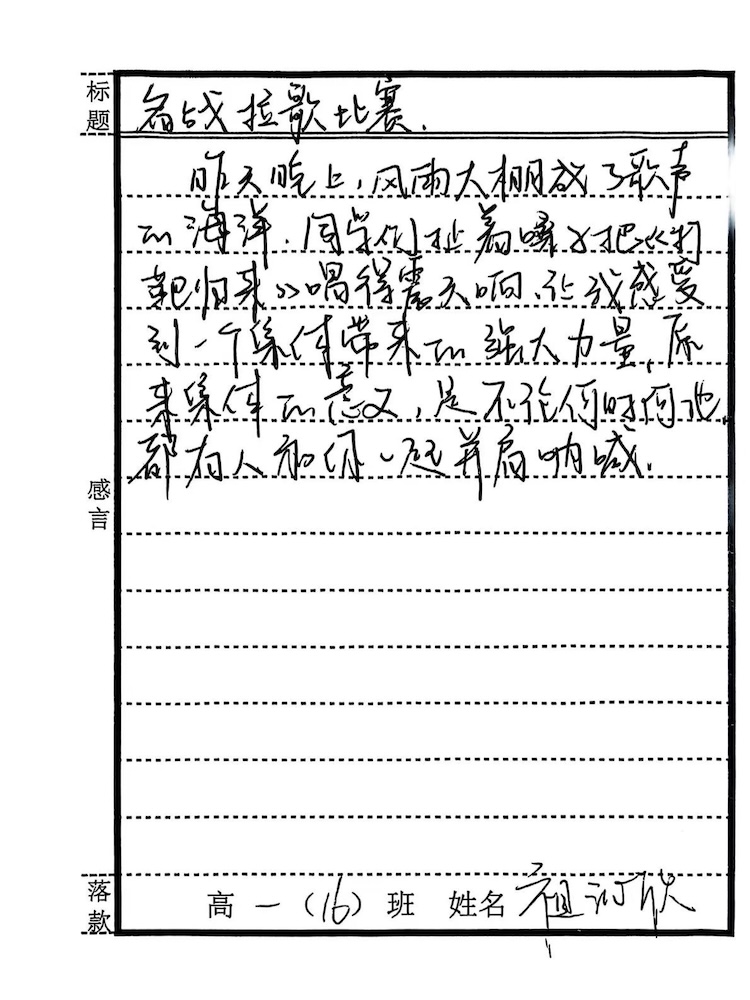 标题
备战拉歌比赛.
昨天晚上,风雨大棚成了歌声
的海洋.同学们扯着嗓子把《打
靶归来》唱得震天响,让我感受
到一个集体带来的强大力量,原
来集体的意义,是不论何时何地,
都有人和你一起并肩呐喊.
感言
落款
高一(16)班 姓名 祖